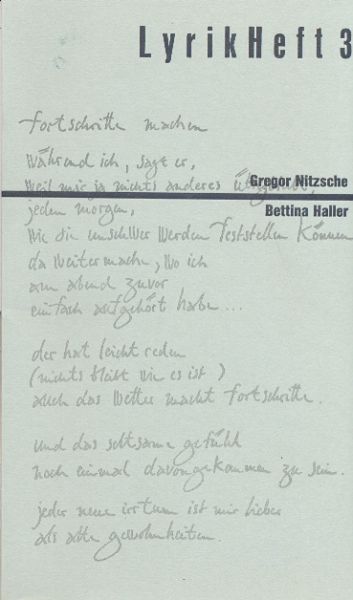 LyrikHeft 3
fortschritte machen
während ich, sagt er,
weil mir ja nichts anderes
Gregor Nitzsche
jeden morgen,
Bettina Haller
wie sie unschwer werden feststellen können
da weitermache, wo ich
am abend zuvor
einfach aufgehört habe...
der hat leicht reden
(nichts bleibt wie es ist)
auch das wetter macht fortschritte.
und das seltsame gefühl
noch einmal davongekommen zu sein.
jeder neue irrtum ist mir lieber
als alte gewohnheiten.